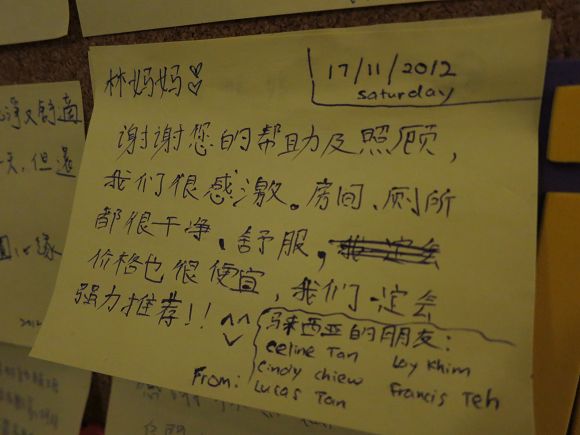 林妈妈♡
17/11/2012
saturday
谢谢您的帮助及照顾，
我们很感激。房间、厕所
都很干净、舒服，
价格也很便宜，我们一定会
强力推荐!! ^^
马来西亚的朋友：
celine Tan
Lay Khim
Cindy Chiew
From: Lucas Tan
Francis Teh
净又舒适
天，但还
2012